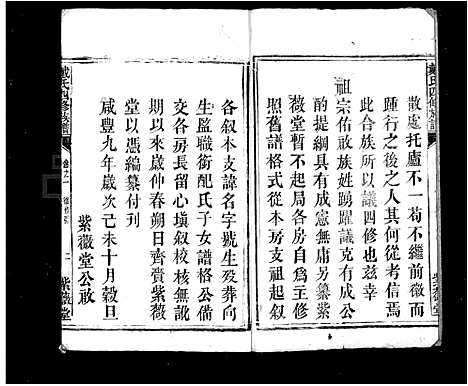 戴氏四修族譜
散處托廬不一苟不繼前徽而
踵行之後之人其何從考信焉
此合族所以議四修也茲幸
祖宗佑啟族姓踴躍議克有成公
酌提綱具有成憲無庸另纂紫
薇堂暫不起局各房自爲主修
照舊譜格式從本房支祖起叙
各叙本支諱名字號生殁葬向
生監職銜配氏子女譜格公備
交各房長留心填叙校核無訛
期以來歲仲春朔日齊賫紫薇
堂以憑編纂付刊
咸豐九年歲次己未十月穀旦
紫薇堂公啟
戴氏四修族譜
卷之一
二
紫薇堂